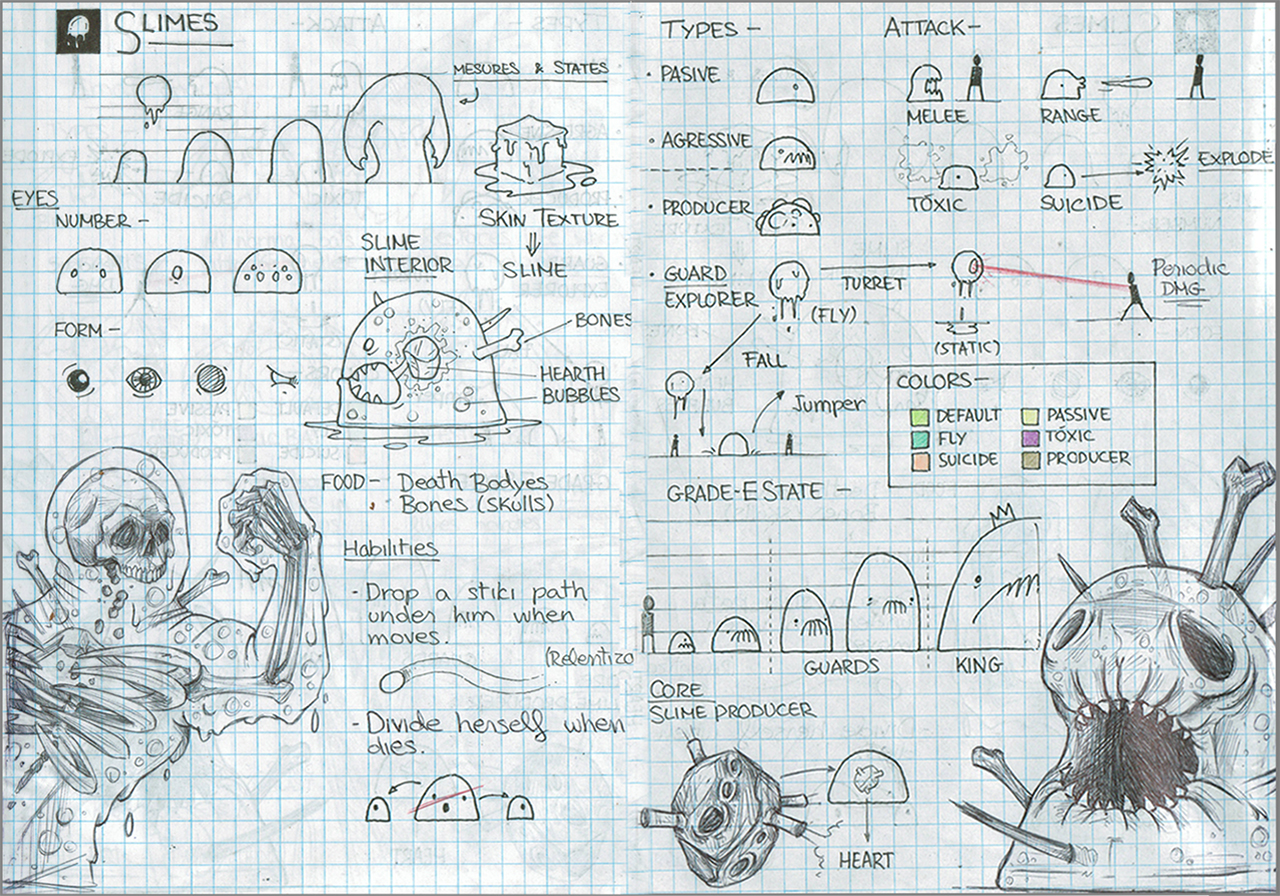 SLIMES
MESURES & STATES
SKIN TEXTURE
SLIME
EYES
NUMBER -
FORM -
SLIME
INTERIOR
BONES
HEARTH
BUBBLES
FOOD - Death Bodyes
Bones (skulls)
Habilities
- Drop a stiki path
under him when
moves.
(Relentiza
- Divide herself when
dies.
TYPES -
· PASIVE
· AGRESSIVE
· PRODUCER
· GUARD
EXPLORER
(FLY)
TURRET
(STATIC)
Periodic
DMG
FALL
Jumper
ATTACK -
MELEE
RANGE
TÓXIC
SUICIDE
EXPLODE
COLORS -
DEFAULT
PASSIVE
FLY
TÓXIC
SUICIDE
PRODUCER
GRADE-ESTATE -
GUARDS
KING
CORE
SLIME PRODUCER
HEART